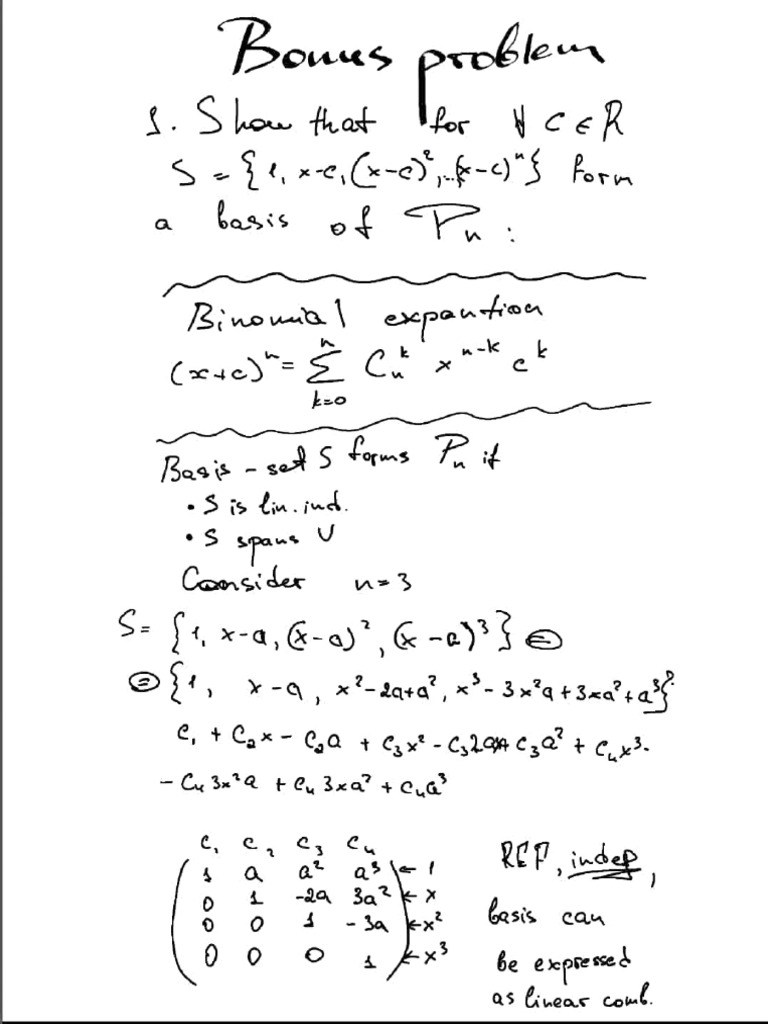 Bonus problem
1. Show that for ∀ c ∈ R
S = {1, x-c, (x-c)², ..(x-c)ⁿ} form
a basis of Pₙ :
Binomial expantion
(x+c)ⁿ = Σ_{k=0}^{n} Cₙᵏ xⁿ⁻ᵏ cᵏ
Basis - set S forms Pₙ if
• S is lin. ind.
• S spans V
Consider n=3
S = {1, x-a, (x-a)², (x-a)³} =
= {1, x-a, x²-2a+a², x³-3x²a+3xa²+a³}
c₁ + c₂x - c₂a + c₃x² - c₃2ax + c₃a² + c₄x³-
- c₄3x²a + c₄3xa² + c₄a³
c₁ c₂ c₃ c₄
1 a a² a³ ← 1
0 1 -2a 3a² ← x
0 0 1 -3a ← x²
0 0 0 1 ← x³
REF, indep,
basis can
be expressed
as linear comb.